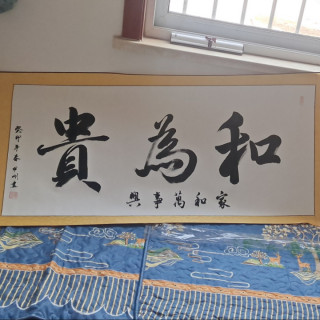 和為貴
家和萬事興
癸卯年春